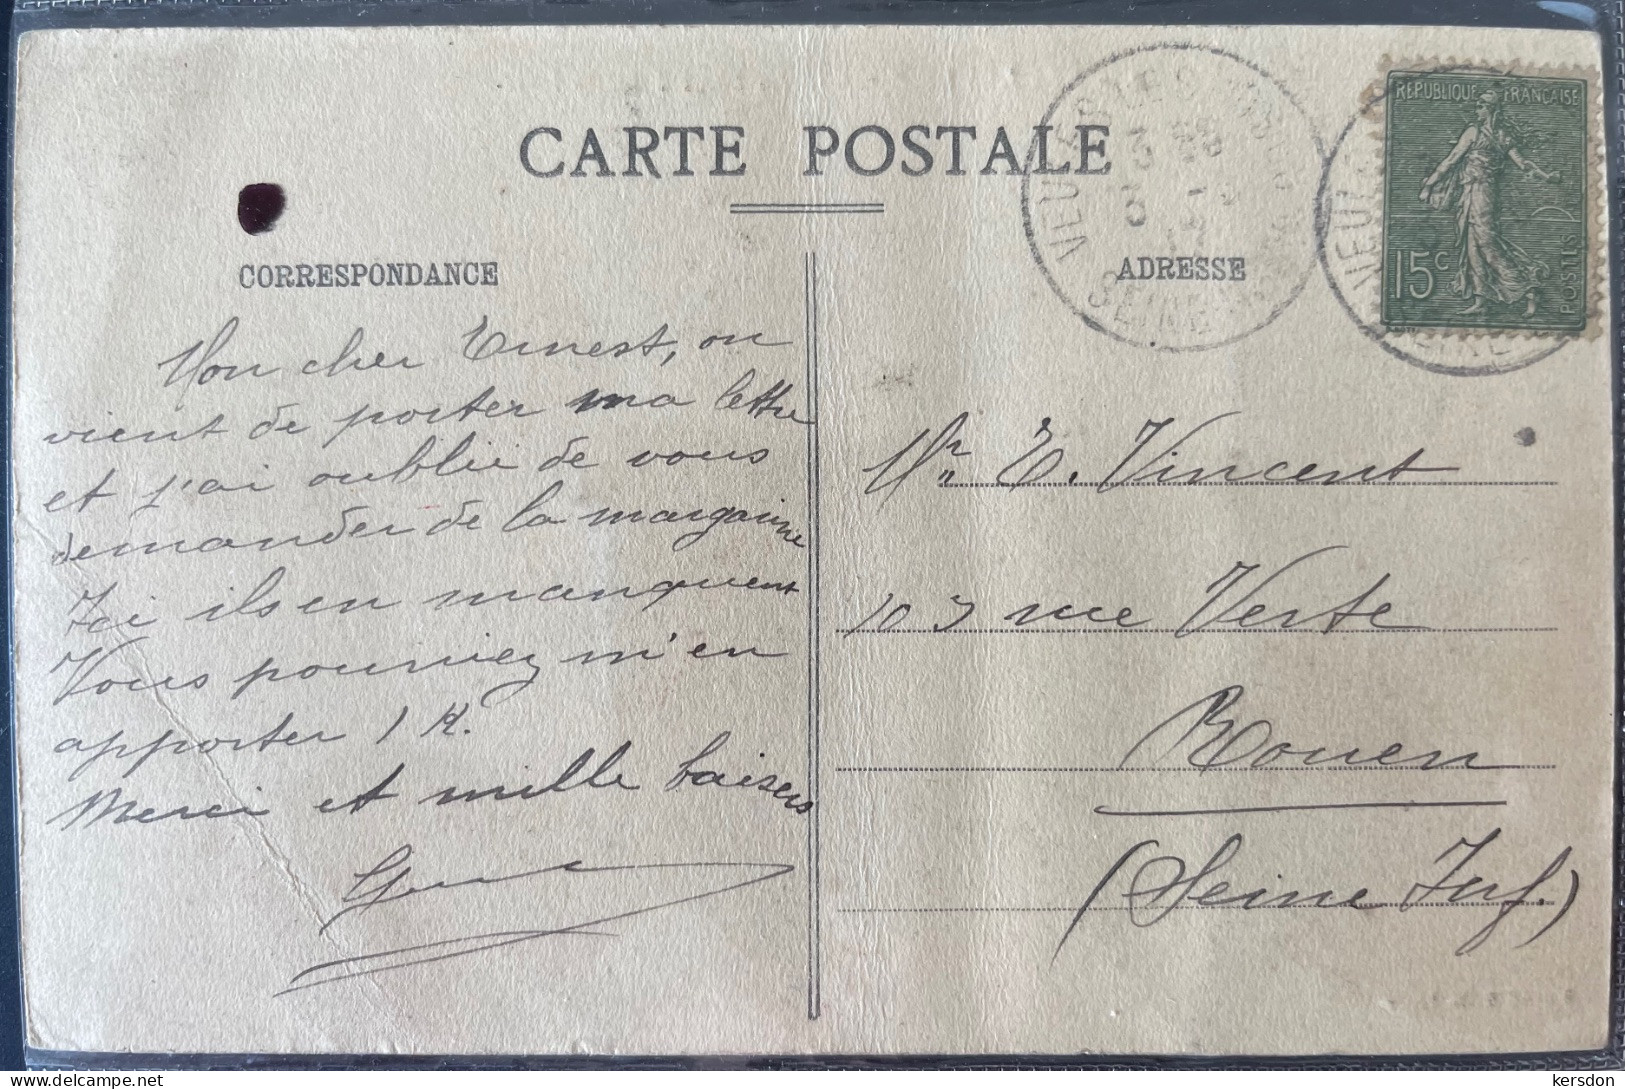 CARTE POSTALE
CORRESPONDANCE
Mon cher Ernest, on
vient de porter ma lettre
et j'ai oublié de vous
demander de la margarine
Ici ils en manquent
Vous pourriez m'en
apporter 1 K.
Merci et mille baisers
ADRESSE
VEULES
SEINE
REPUBLIQUE FRANÇAISE
15c
POSTES
Mr. E. Vincent
103 rue Verte
Rouen
(Seine Inf.)
kersdon